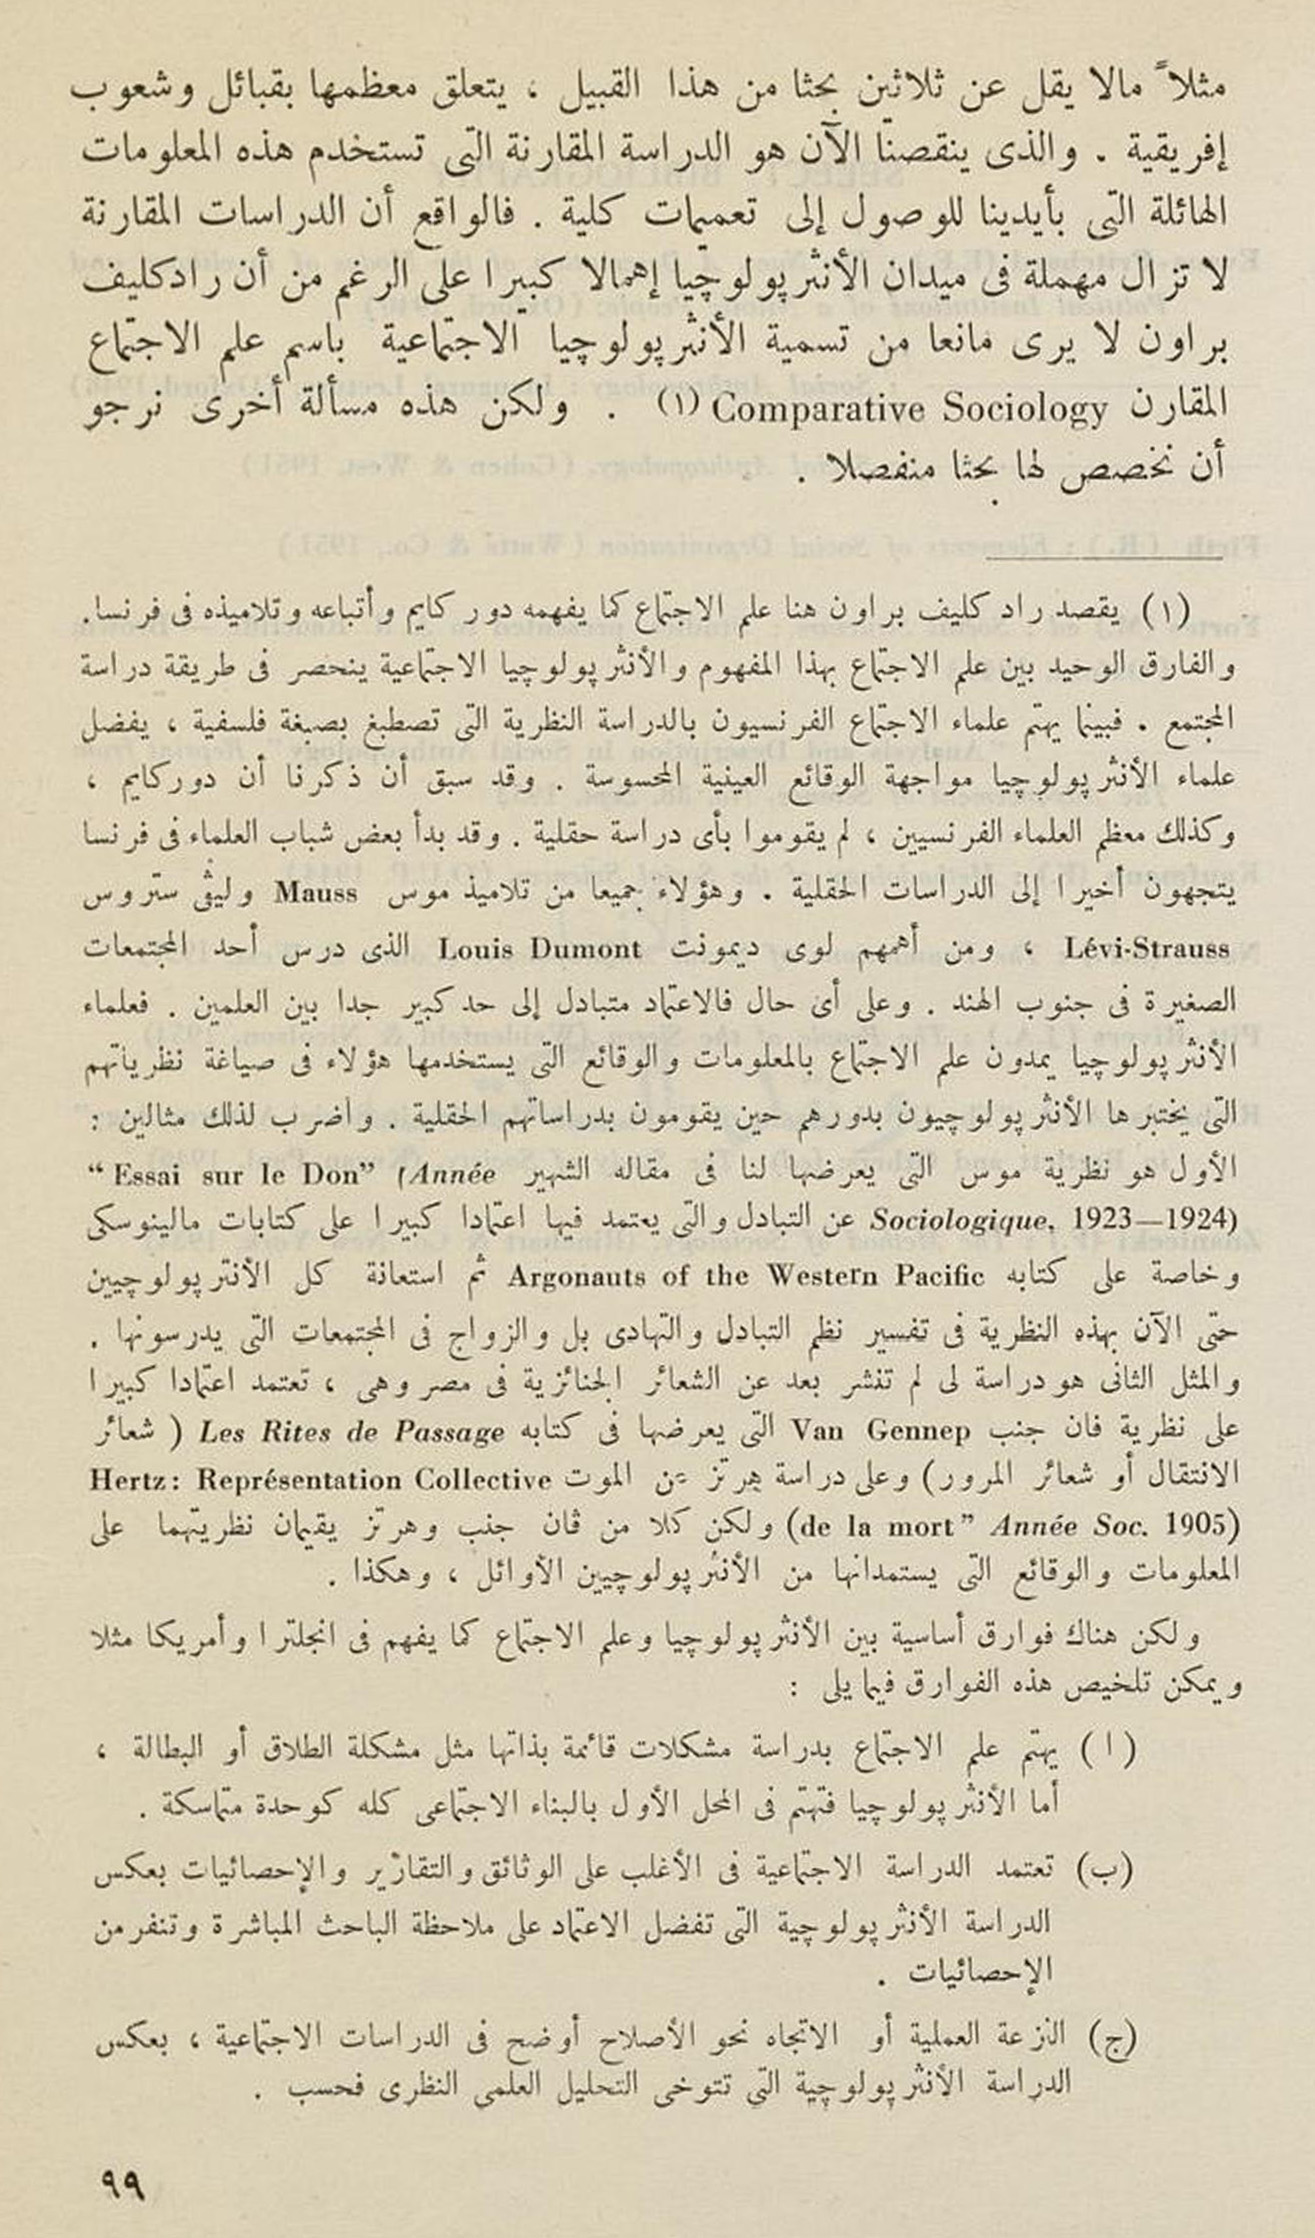 مثلاً مالا يقل عن ثلاثين بحثا من هذا القبيل ، يتعلق معظمها بقبائل وشعوب
إفريقية . والذى ينقصنا الآن هو الدراسة المقارنة التى تستخدم هذه المعلومات
الهائلة التى بأيدينا للوصول إلى تعميمات كلية . فالواقع أن الدراسات المقارنة
لا تزال مهملة فى ميدان الأنثرپولوچيا إهمالا كبيرا على الرغم من أن رادكليف
براون لا يرى مانعا من تسمية الأنثرپولوچيا الاجتماعية باسم علم الاجتماع
المقارن Comparative Sociology (١) . ولكن هذه مسألة أخرى نرجو
أن نخصص لها بحثا منفصلا .
(١) يقصد راد كليف براون هنا علم الاجتماع كما يفهمه دور كايم وأتباعه وتلاميذه فى فرنسا.
والفارق الوحيد بين علم الاجتماع بهذا المفهوم والأنثرپولوچيا الاجتماعية ينحصر فى طريقة دراسة
المجتمع . فبينما يهتم علماء الاجتماع الفرنسيون بالدراسة النظرية التى تصطبغ بصبغة فلسفية ، يفضل
علماء الأنثرپولوچيا مواجهة الوقائع العينية المحسوسة . وقد سبق أن ذكرنا أن دوركايم ،
وكذلك معظم العلماء الفرنسيين ، لم يقوموا بأى دراسة حقلية . وقد بدأ بعض شباب العلماء فى فرنسا
يتجهون أخيرا إلى الدراسات الحقلية . وهؤلاء جميعا من تلاميذ موس Mauss وليڤى ستروس
Lévi-Strauss ، ومن أهمهم لوى ديمونت Louis Dumont الذى درس أحد المجتمعات
الصغيرة فى جنوب الهند . وعلى أى حال فالاعتماد متبادل إلى حد كبير جدا بين العلمين . فعلماء
الأنثرپولوچيا يمدون علم الاجتماع بالمعلومات والوقائع التى يستخدمها هؤلاء فى صياغة نظرياتهم
التى يختبرها الأنثرپولوچيون بدورهم حين يقومون بدراساتهم الحقلية . واضرب لذلك مثالين :
الأول هو نظرية موس التى يعرضها لنا فى مقاله الشهير “Essai sur le Don” (Année
Sociologique, 1923—1924) عن التبادل والتى يعتمد فيها اعتمادا كبيرا على كتابات مالينوسكى
وخاصة على كتابه Argonauts of the Western Pacific ثم استعانة كل الأنثرپولوچيين
حتى الآن بهذه النظرية فى تفسير نظم التبادل والتهادى بل والزواج فى المجتمعات التى يدرسونها .
والمثل الثانى هو دراسة لى لم تنشر بعد عن الشعائر الجنائزية فى مصر وهى ، تعتمد اعتمادا كبيرا
على نظرية ڤان جنب Van Gennep التى يعرضها فى كتابه Les Rites de Passage ( شعائر
الانتقال أو شعائر المرور) وعلى دراسة هرتز عن الموت Hertz: Représentation Collective
de la mort” Année Soc. 1905) ولكن كلا من ڤان جنب وهرتز يقيمان نظريتهما على
المعلومات والوقائع التى يستمدانها من الأنثرپولوچيين الأوائل ، وهكذا .
ولكن هناك فوارق أساسية بين الأنثرپولوچيا وعلم الاجتماع كما يفهم فى انجلترا وأمريكا مثلا
ويمكن تلخيص هذه الفوارق فيما يلى :
( ا ) يهتم علم الاجتماع بدراسة مشكلات قائمة بذاتها مثل مشكلة الطلاق أو البطالة ،
أما الأنثرپولوچيا فتهتم فى المحل الأول بالبناء الاجتماعى كله كوحدة متماسكة .
(ب) تعتمد الدراسة الاجتماعية فى الأغلب على الوثائق والتقارير والإحصائيات بعكس
الدراسة الأنثرپولوچية التى تفضل الاعتماد على ملاحظة الباحث المباشرة وتنفر من
الإحصائيات .
(ج) النزعة العملية أو الاتجاه نحو الأصلاح أوضح فى الدراسات الاجتماعية ، بعكس
الدراسة الأنثرپولوچية التى تتوخى التحليل العلمى النظرى فحسب .
٩٩